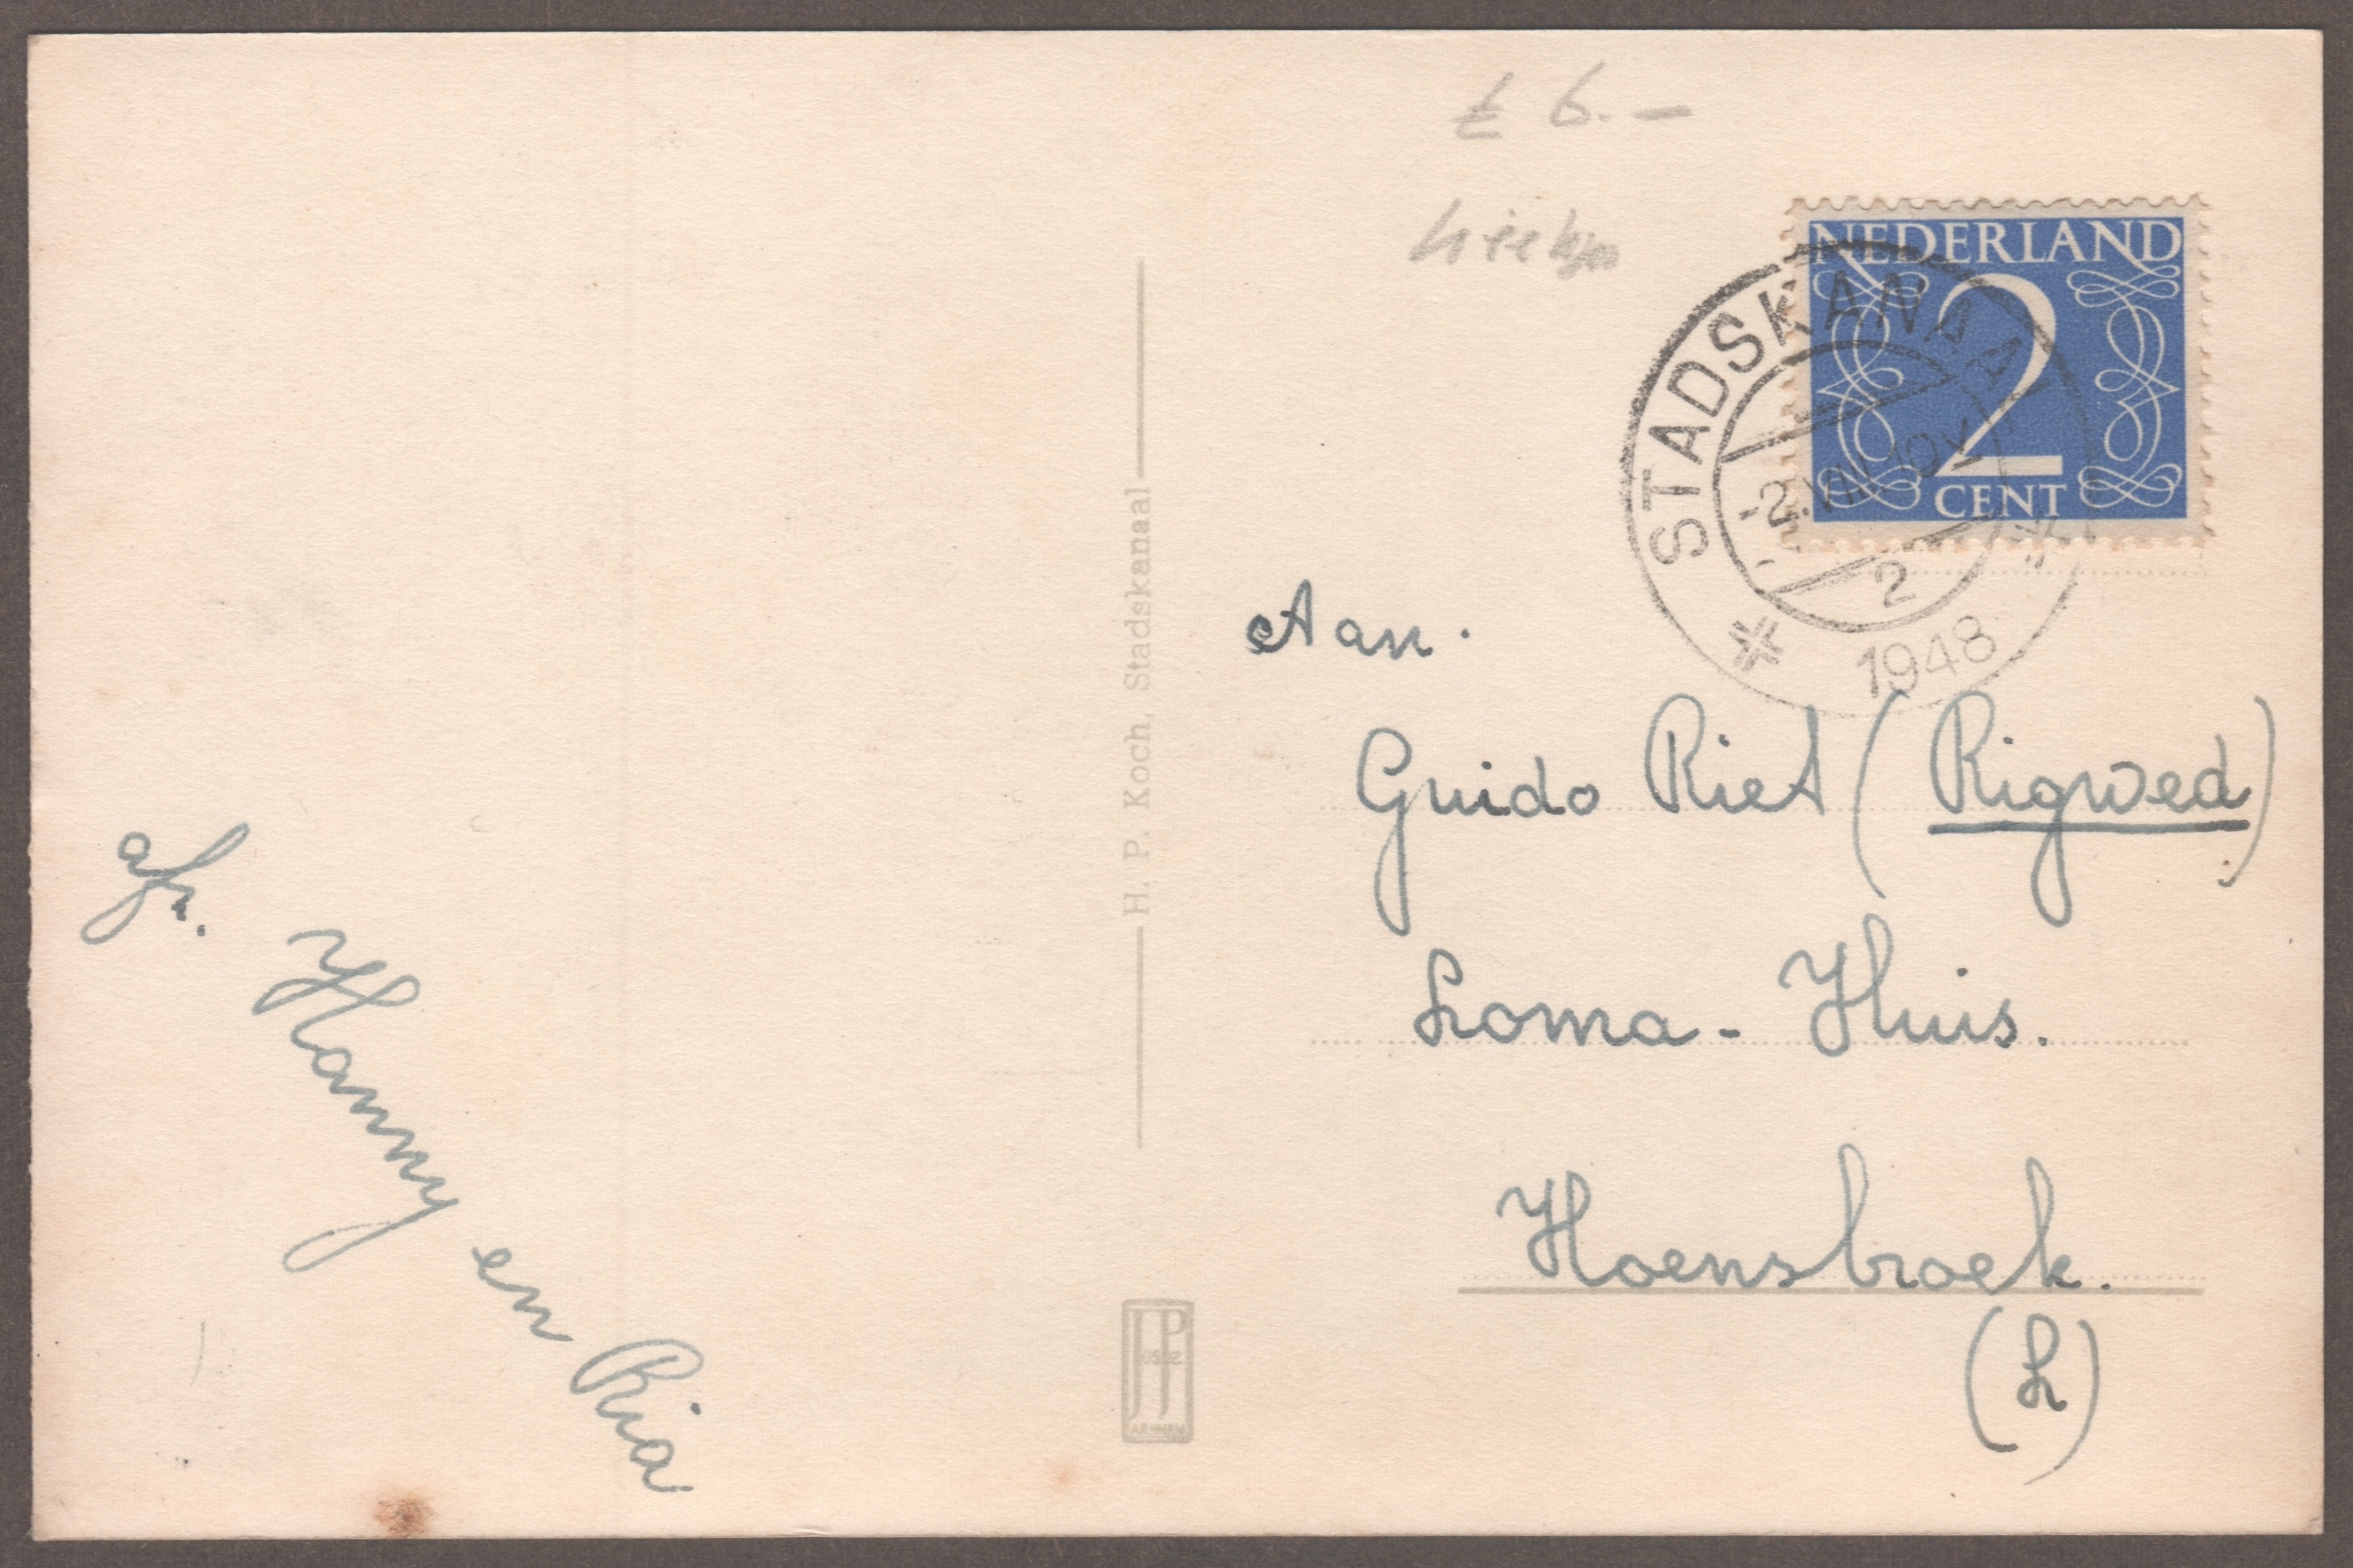 £ 6.-
NEDERLAND
2
CENT
STADSKANAAL
-2.VIII 10V
2
1948
H. P. Koch, Stadskanaal
Aan.
Guido Riet (Rigwed)
Loma-Huis.
Hoensbroek.
(L)
afz.
Hanny en Ria
JP
ARNHEM